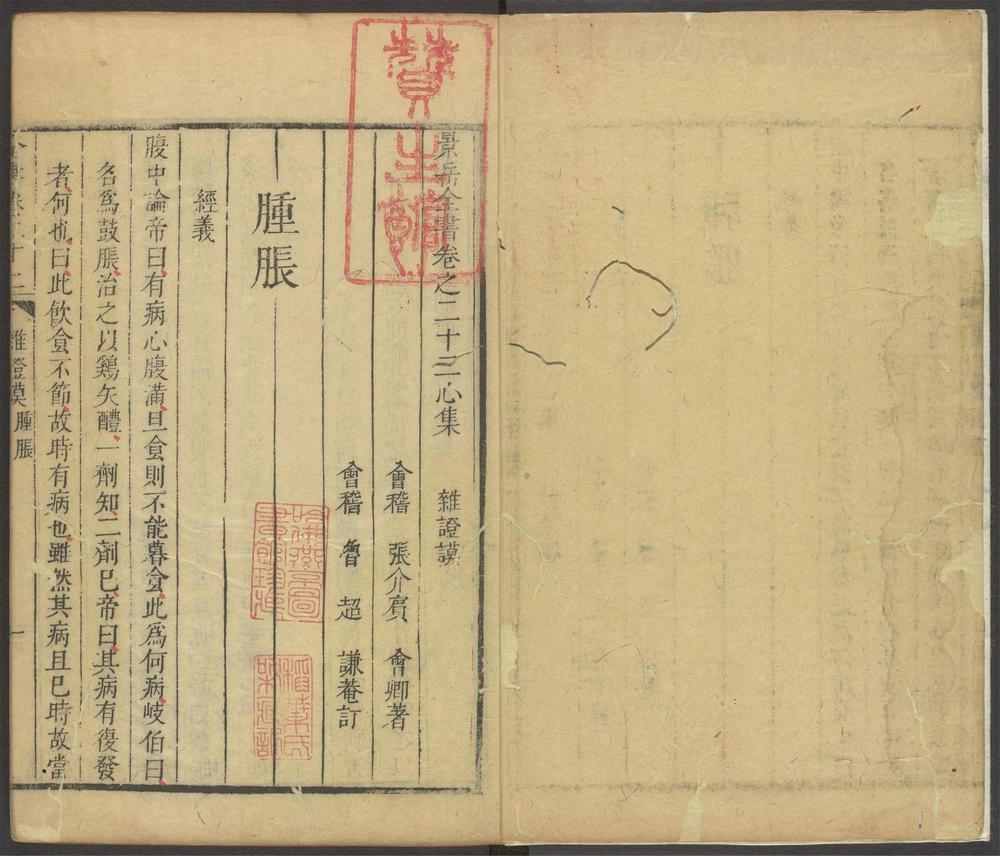 景岳全書卷之二十二心集 雜證謨
會稽 張介賓 會卿著
會稽 魯 超 謙菴訂
腫脹
經義
腹中論帝曰有病心腹滿旦食則不能暮食此爲何病岐伯曰
名爲鼓脹治之以鷄矢醴一劑知二劑已帝曰其病有復發
者何也曰此飲食不節故時有病也雖然其病且已時故當
卷二十二 雜證謨 腫脹 一